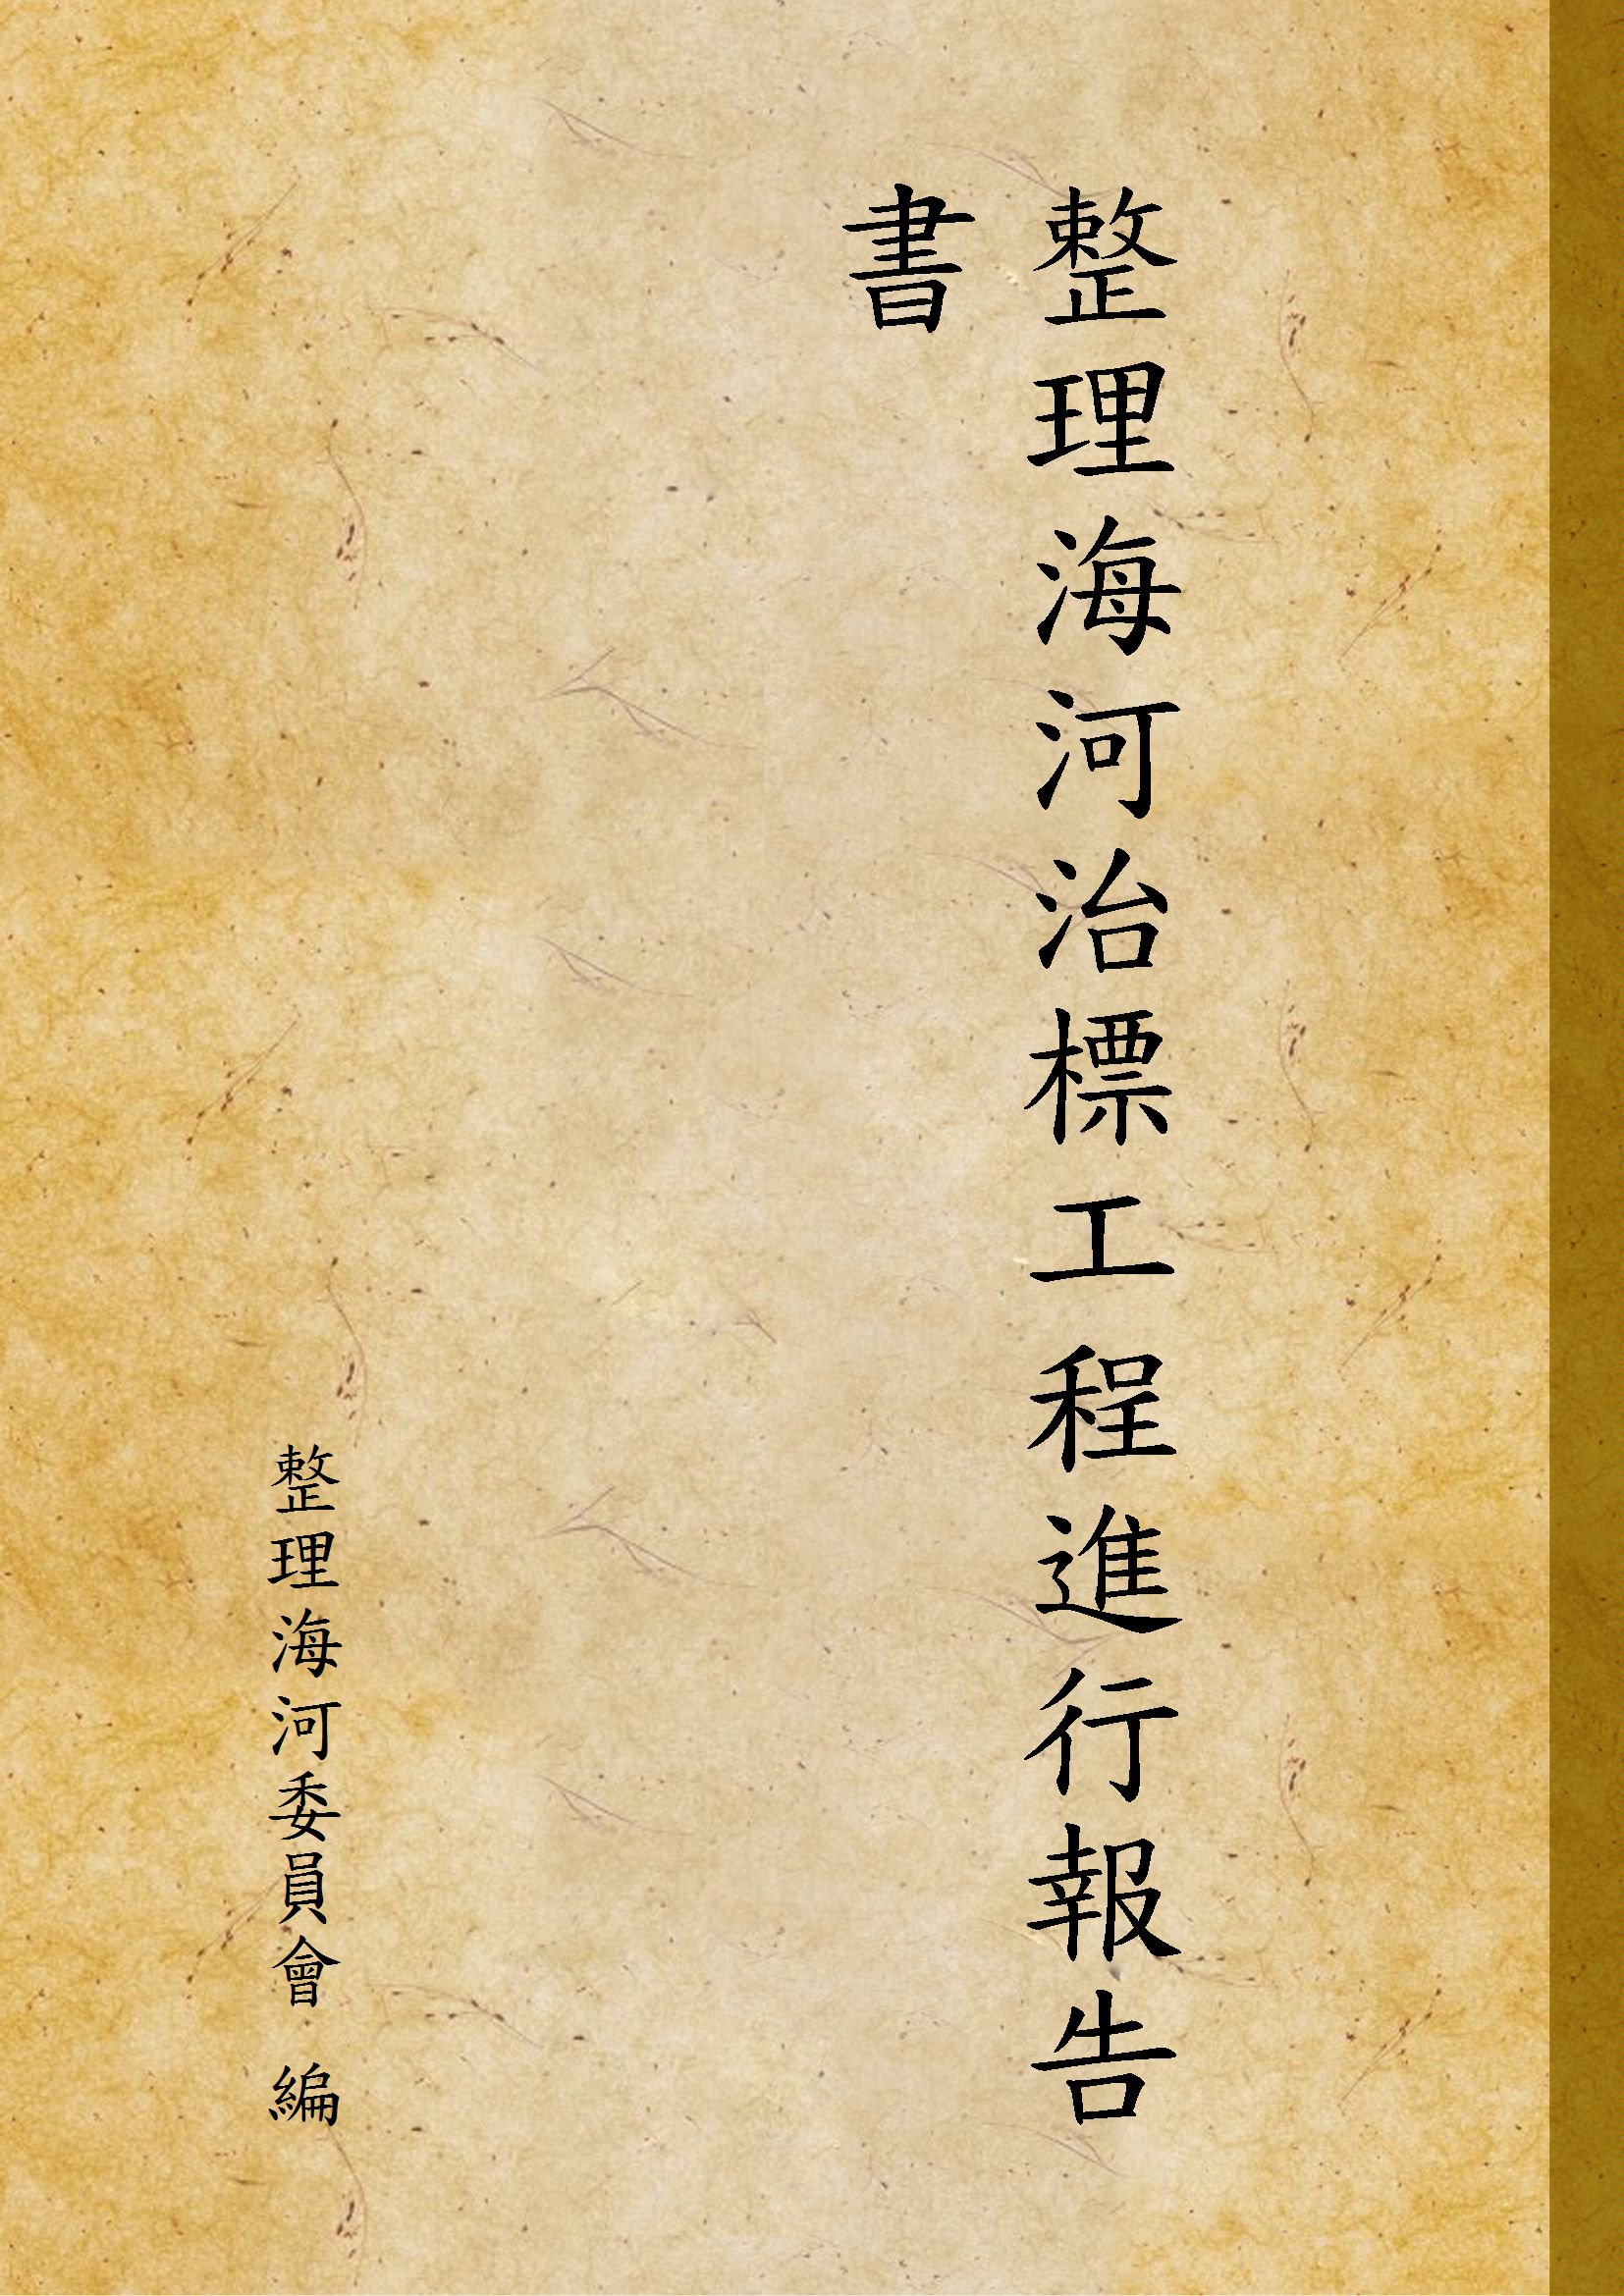 整理海河治標工程進行報告
書
整理海河委員會 編